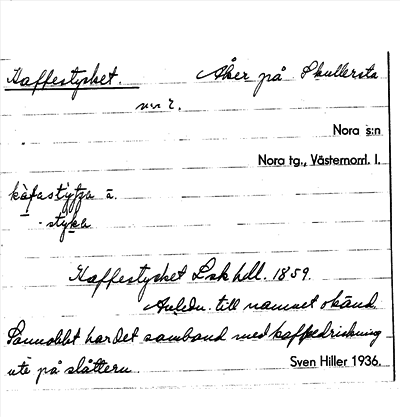 Kaffestycket. Åker på Skullersta
nr 2.
Nora s:n
Nora tg., Västernorrl. l.
Kaffestycket Lsk hdl. 1859.
Anledn. till namnet okänd.
Sannolikt har det samband med kaffedrickning
ute på slåttern.
Sven Hiller 1936.